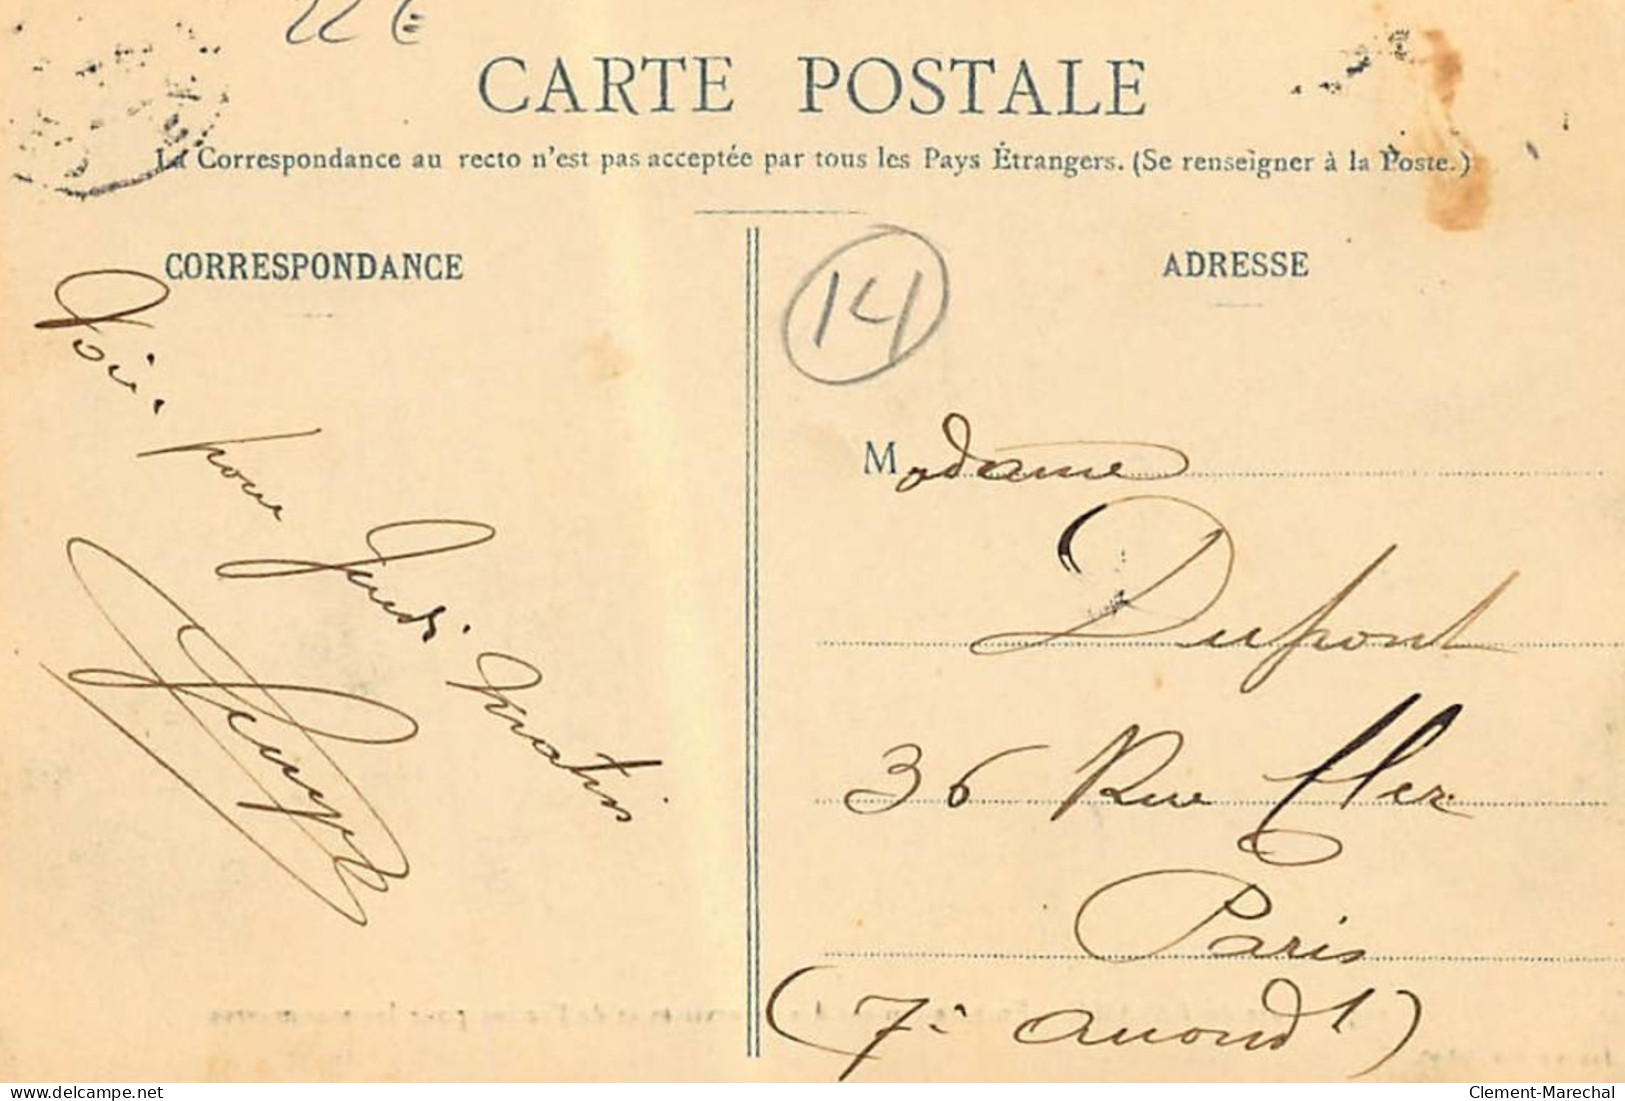 22 €
CARTE POSTALE
La Correspondance au recto n'est pas acceptée par tous les Pays Étrangers. (Se renseigner à la Poste.)
CORRESPONDANCE
pour
Jeudi matin
14
ADRESSE
Madame
Dupont
36 Rue Cler
Paris
(7e arrondt)
delcampe.net
Clement-Marechal